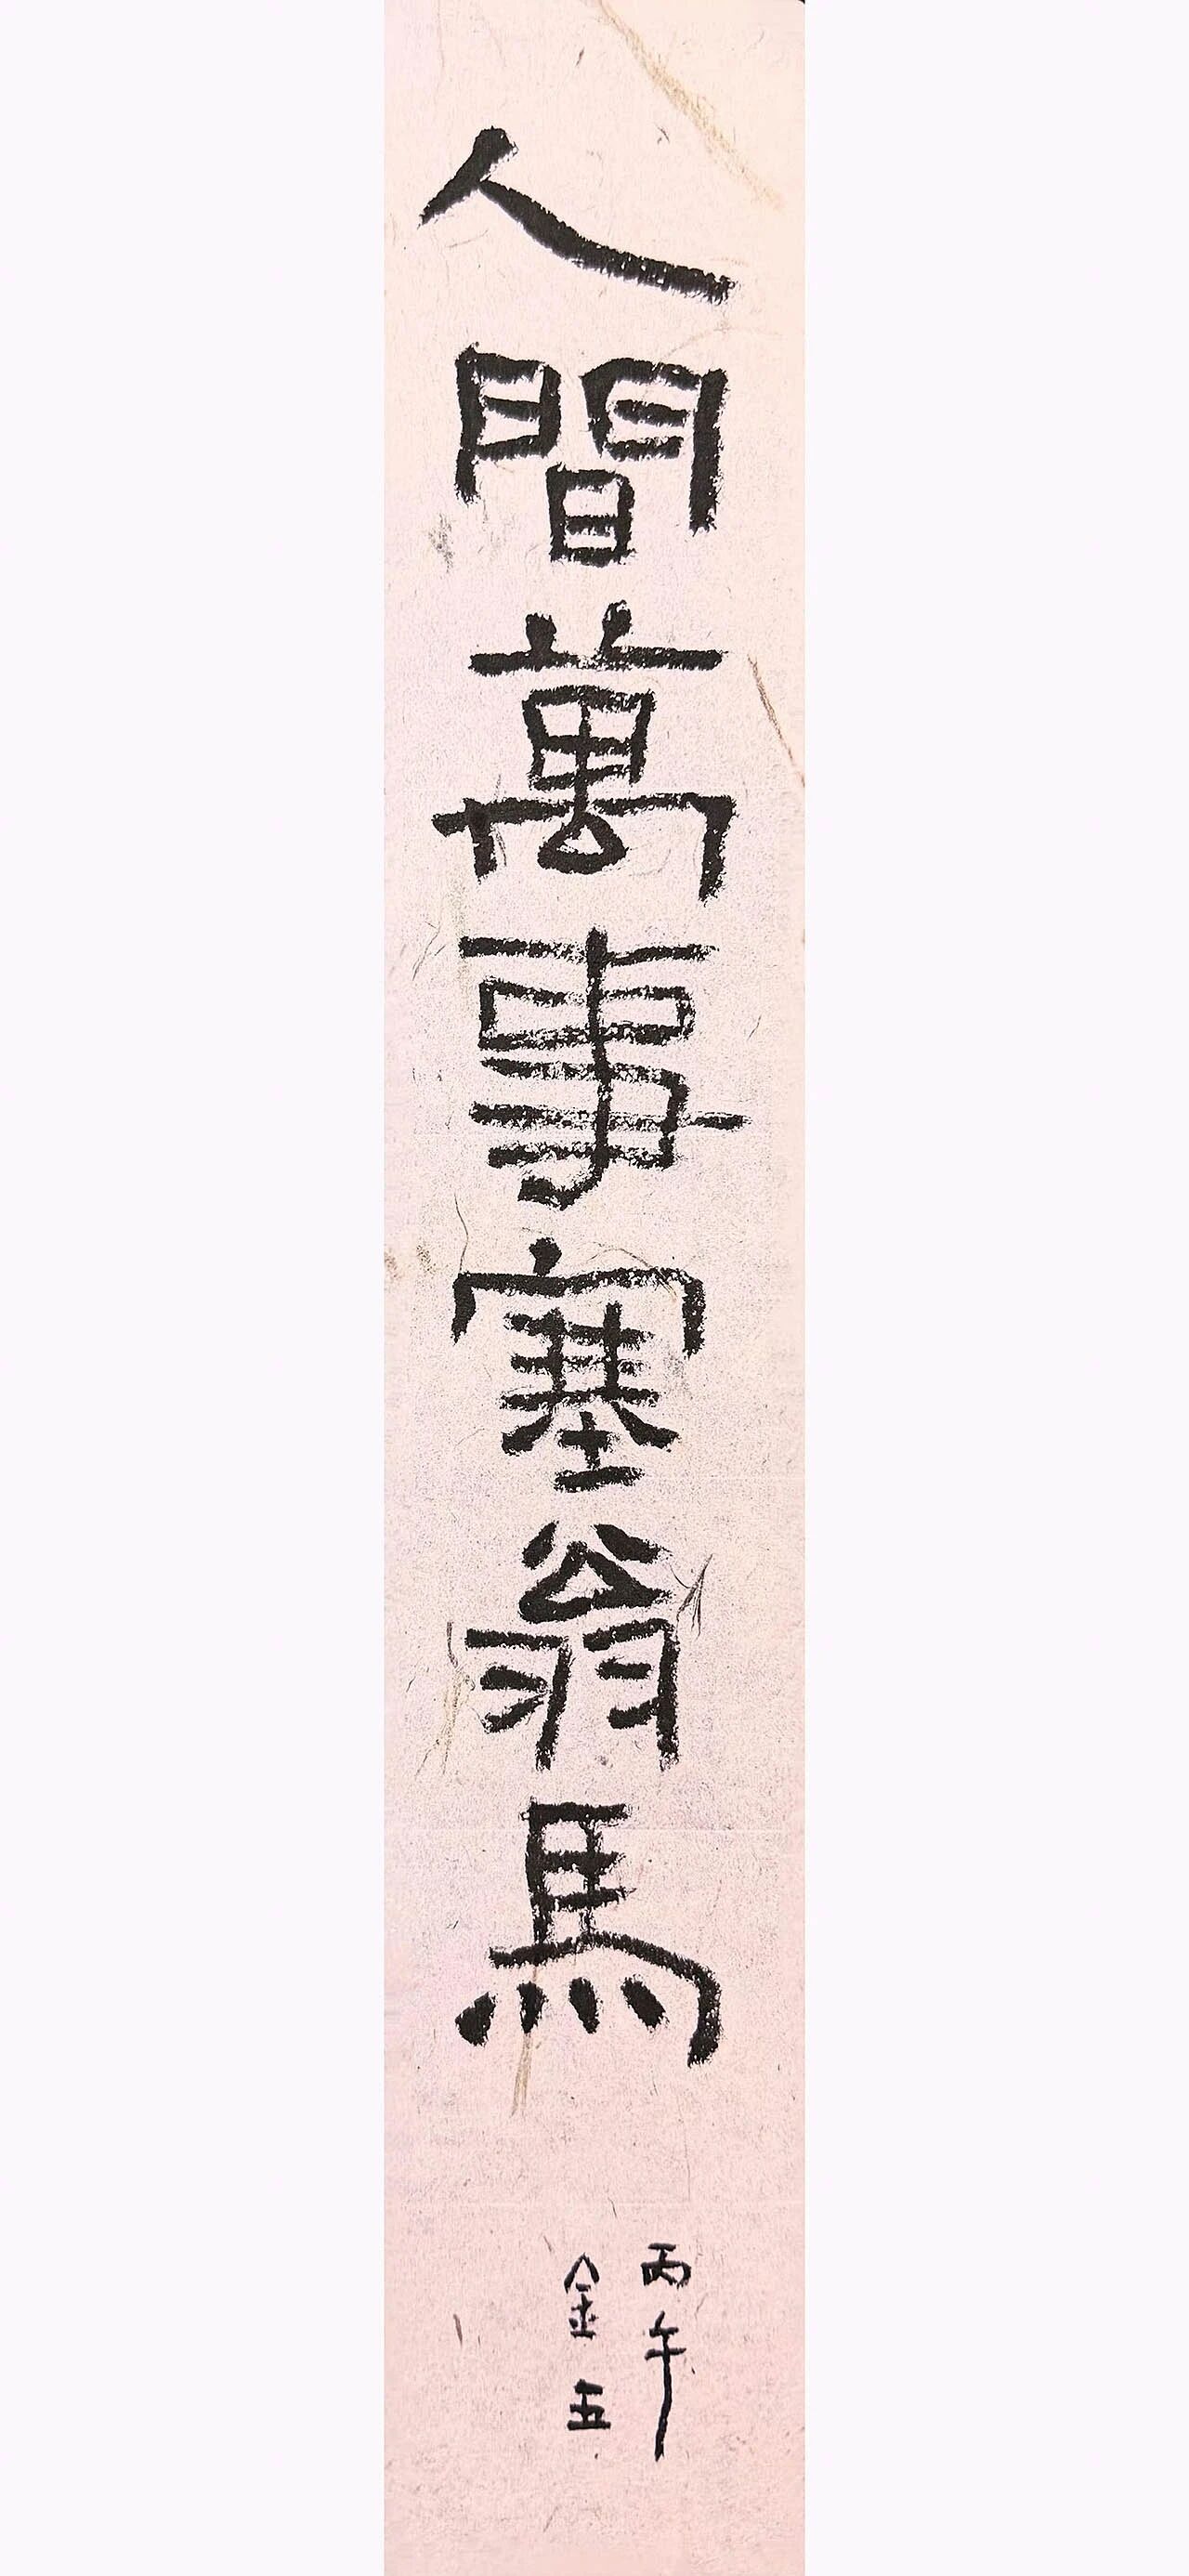 人間萬事塞翁馬
丙午
金五